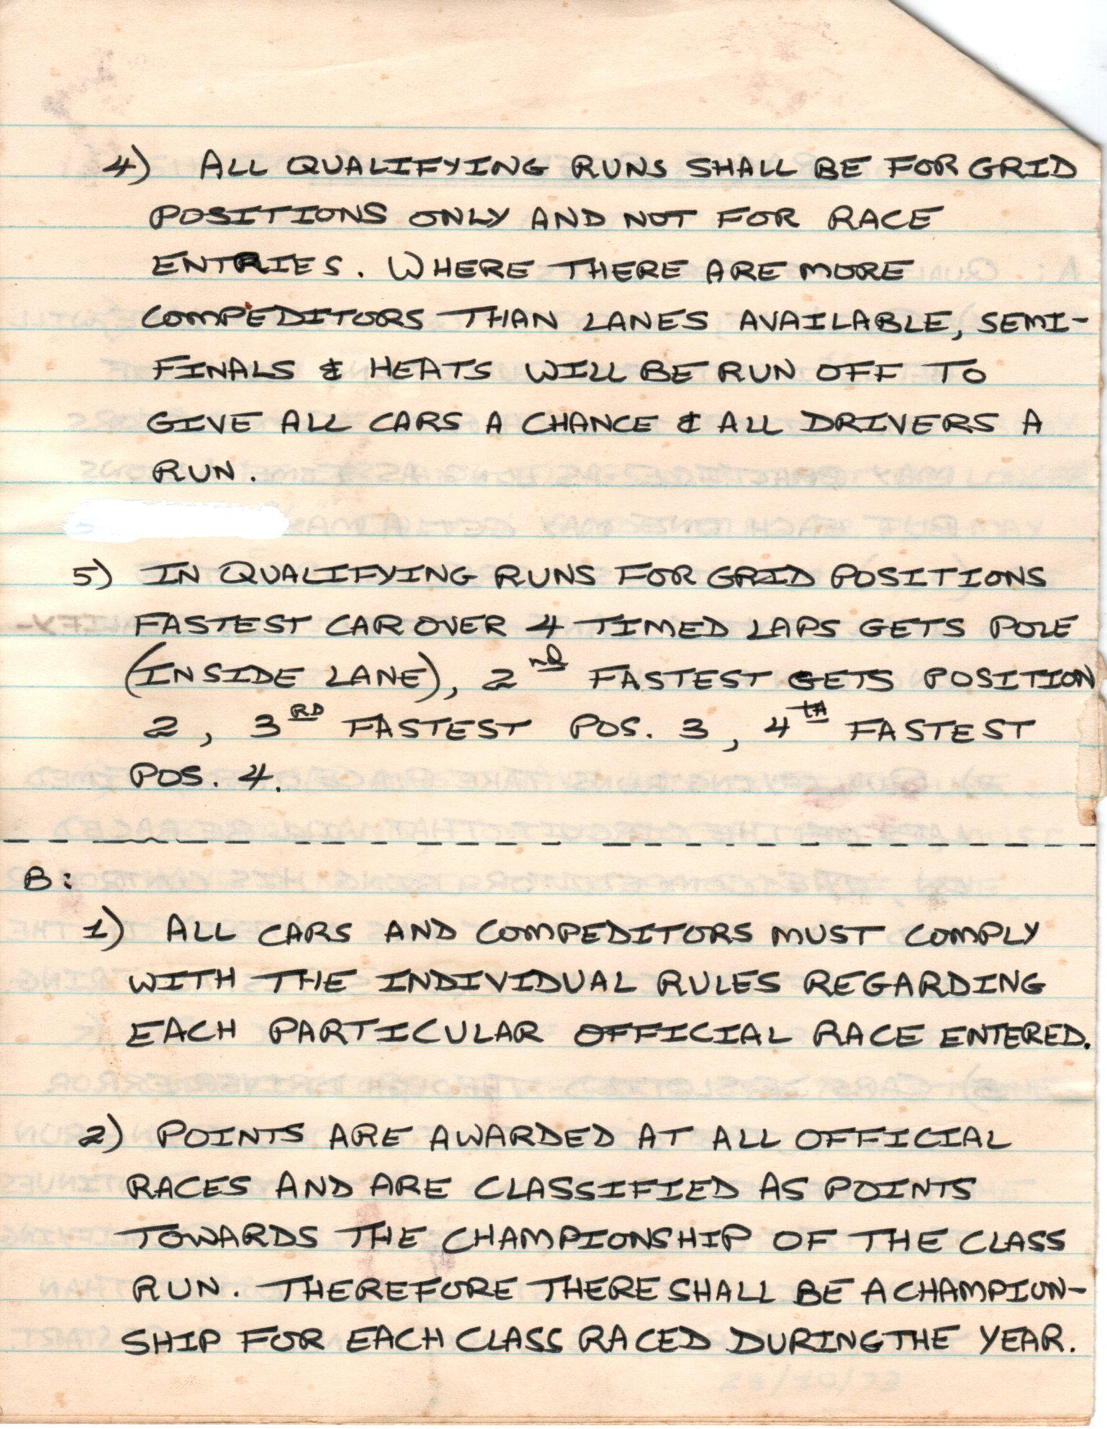 4) ALL QUALIFYING RUNS SHALL BE FOR GRID
POSITIONS ONLY AND NOT FOR RACE
ENTRIES. WHERE THERE ARE MORE
COMPEDITORS THAN LANES AVAILABLE, SEMI-
FINALS & HEATS WILL BE RUN OFF TO
GIVE ALL CARS A CHANCE & ALL DRIVERS A
RUN.
5) IN QUALIFYING RUNS FOR GRID POSITIONS
FASTEST CAR OVER 4 TIMED LAPS GETS POLE
(INSIDE LANE), 2ND FASTEST GETS POSITION
2, 3RD FASTEST POS. 3, 4TH FASTEST
POS. 4.
B:
1) ALL CARS AND COMPEDITORS MUST COMPLY
WITH THE INDIVIDUAL RULES REGARDING
EACH PARTICULAR OFFICIAL RACE ENTERED.
2) POINTS ARE AWARDED AT ALL OFFICIAL
RACES AND ARE CLASSIFIED AS POINTS
TOWARDS THE CHAMPIONSHIP OF THE CLASS
RUN. THEREFORE THERE SHALL BE A CHAMPION-
SHIP FOR EACH CLASS RACED DURING THE YEAR.